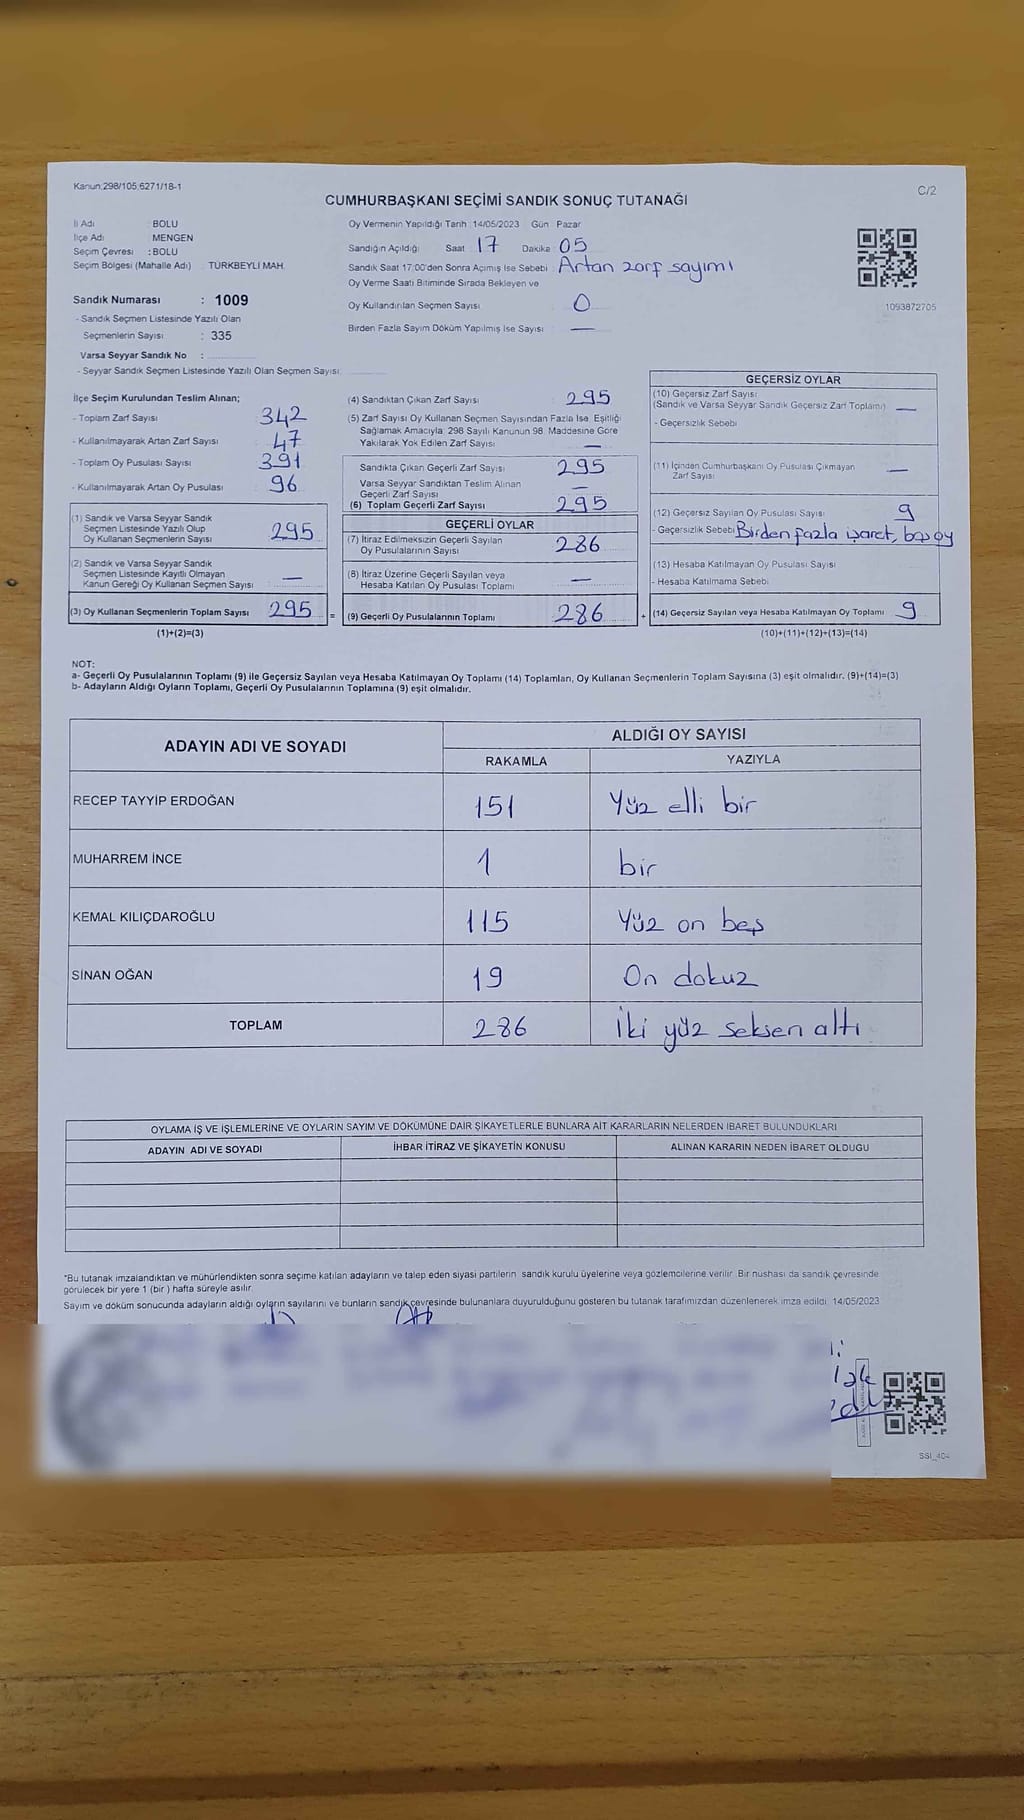 Kanun;298/105;6271/18-1
C/2
CUMHURBAŞKANI SEÇİMİ SANDIK SONUÇ TUTANAĞI
İl Adı : BOLU
İlçe Adı : MENGEN
Seçim Çevresi : BOLU
Seçim Bölgesi (Mahalle Adı) : TÜRKBEYLİ MAH.
Sandık Numarası : 1009
- Sandık Seçmen Listesinde Yazılı Olan
Seçmenlerin Sayısı : 335
Varsa Seyyar Sandık No :
- Seyyar Sandık Seçmen Listesinde Yazılı Olan Seçmen Sayısı:
Oy Vermenin Yapıldığı Tarih : 14/05/2023 Gün : Pazar
Sandığın Açıldığı Saat 17 Dakika 05
Sandık Saat 17:00'den Sonra Açımış İse Sebebi : Artan zarf sayımı
Oy Verme Saati Bitiminde Sırada Bekleyen ve
Oy Kullandırılan Seçmen Sayısı 0
Birden Fazla Sayım Döküm Yapılmış İse Sayısı : —
1093872705
İlçe Seçim Kurulundan Teslim Alınan;
- Toplam Zarf Sayısı 342
- Kullanılmayarak Artan Zarf Sayısı 47
- Toplam Oy Pusulası Sayısı 391
- Kullanılmayarak Artan Oy Pusulası 96
(1) Sandık ve Varsa Seyyar Sandık
Seçmen Listesinde Yazılı Olup
Oy Kullanan Seçmenlerin Sayısı 295
(2) Sandık ve Varsa Seyyar Sandık
Seçmen Listesinde Kayıtlı Olmayan
Kanun Gereği Oy Kullanan Seçmen Sayısı —
(3) Oy Kullanan Seçmenlerin Toplam Sayısı 295 =
(1)+(2)=(3)
(4) Sandıktan Çıkan Zarf Sayısı 295
(5) Zarf Sayısı Oy Kullanan Seçmen Sayısından Fazla İse, Eşitliği
Sağlamak Amacıyla; 298 Sayılı Kanunun 98. Maddesine Göre
Yakılarak Yok Edilen Zarf Sayısı —
Sandıkta Çıkan Geçerli Zarf Sayısı 295
Varsa Seyyar Sandıktan Teslim Alınan
Geçerli Zarf Sayısı —
(6) Toplam Geçerli Zarf Sayısı 295
GEÇERLİ OYLAR
(7) İtiraz Edilmeksizin Geçerli Sayılan
Oy Pusulalarının Sayısı 286
(8) İtiraz Üzerine Geçerli Sayılan veya
Hesaba Katılan Oy Pusulası Toplamı —
(9) Geçerli Oy Pusulalarının Toplamı 286 +
GEÇERSİZ OYLAR
(10) Geçersiz Zarf Sayısı
(Sandık ve Varsa Seyyar Sandık Geçersiz Zarf Toplamı) —
- Geçersizlik Sebebi
(11) İçinden Cumhurbaşkanı Oy Pusulası Çıkmayan
Zarf Sayısı —
(12) Geçersiz Sayılan Oy Pusulası Sayısı 9
- Geçersizlik Sebebi Birden fazla işaret, boş oy
(13) Hesaba Katılmayan Oy Pusulası Sayısı
- Hesaba Katılmama Sebebi
(14) Geçersiz Sayılan veya Hesaba Katılmayan Oy Toplamı 9
(10)+(11)+(12)+(13)=(14)
NOT:
a- Geçerli Oy Pusulalarının Toplamı (9) ile Geçersiz Sayılan veya Hesaba Katılmayan Oy Toplamı (14) Toplamları, Oy Kullanan Seçmenlerin Toplam Sayısına (3) eşit olmalıdır. (9)+(14)=(3)
b- Adayların Aldığı Oyların Toplamı, Geçerli Oy Pusulalarının Toplamına (9) eşit olmalıdır.
ADAYIN ADI VE SOYADI
ALDIĞI OY SAYISI
RAKAMLA YAZIYLA
RECEP TAYYİP ERDOĞAN 151 Yüz elli bir
MUHARREM İNCE 1 bir
KEMAL KILIÇDAROĞLU 115 Yüz on beş
SİNAN OĞAN 19 On dokuz
TOPLAM 286 İki yüz seksen altı
OYLAMA İŞ VE İŞLEMLERİNE VE OYLARIN SAYIM VE DÖKÜMÜNE DAİR ŞİKAYETLERLE BUNLARA AİT KARARLARIN NELERDEN İBARET BULUNDUKLARI
ADAYIN ADI VE SOYADI İHBAR İTİRAZ VE ŞİKAYETİN KONUSU ALINAN KARARIN NEDEN İBARET OLDUĞU
*Bu tutanak imzalandıktan ve mühürlendikten sonra seçime katılan adayların ve talep eden siyasi partilerin sandık kurulu üyelerine veya gözlemcilerine verilir. Bir nüshası da sandık çevresinde
görülecek bir yere 1 (bir) hafta süreyle asılır.
Sayım ve döküm sonucunda adayların aldığı oyların sayılarını ve bunların sandık çevresinde bulunanlara duyurulduğunu gösteren bu tutanak tarafımızdan düzenlenerek imza edildi. 14/05/2023